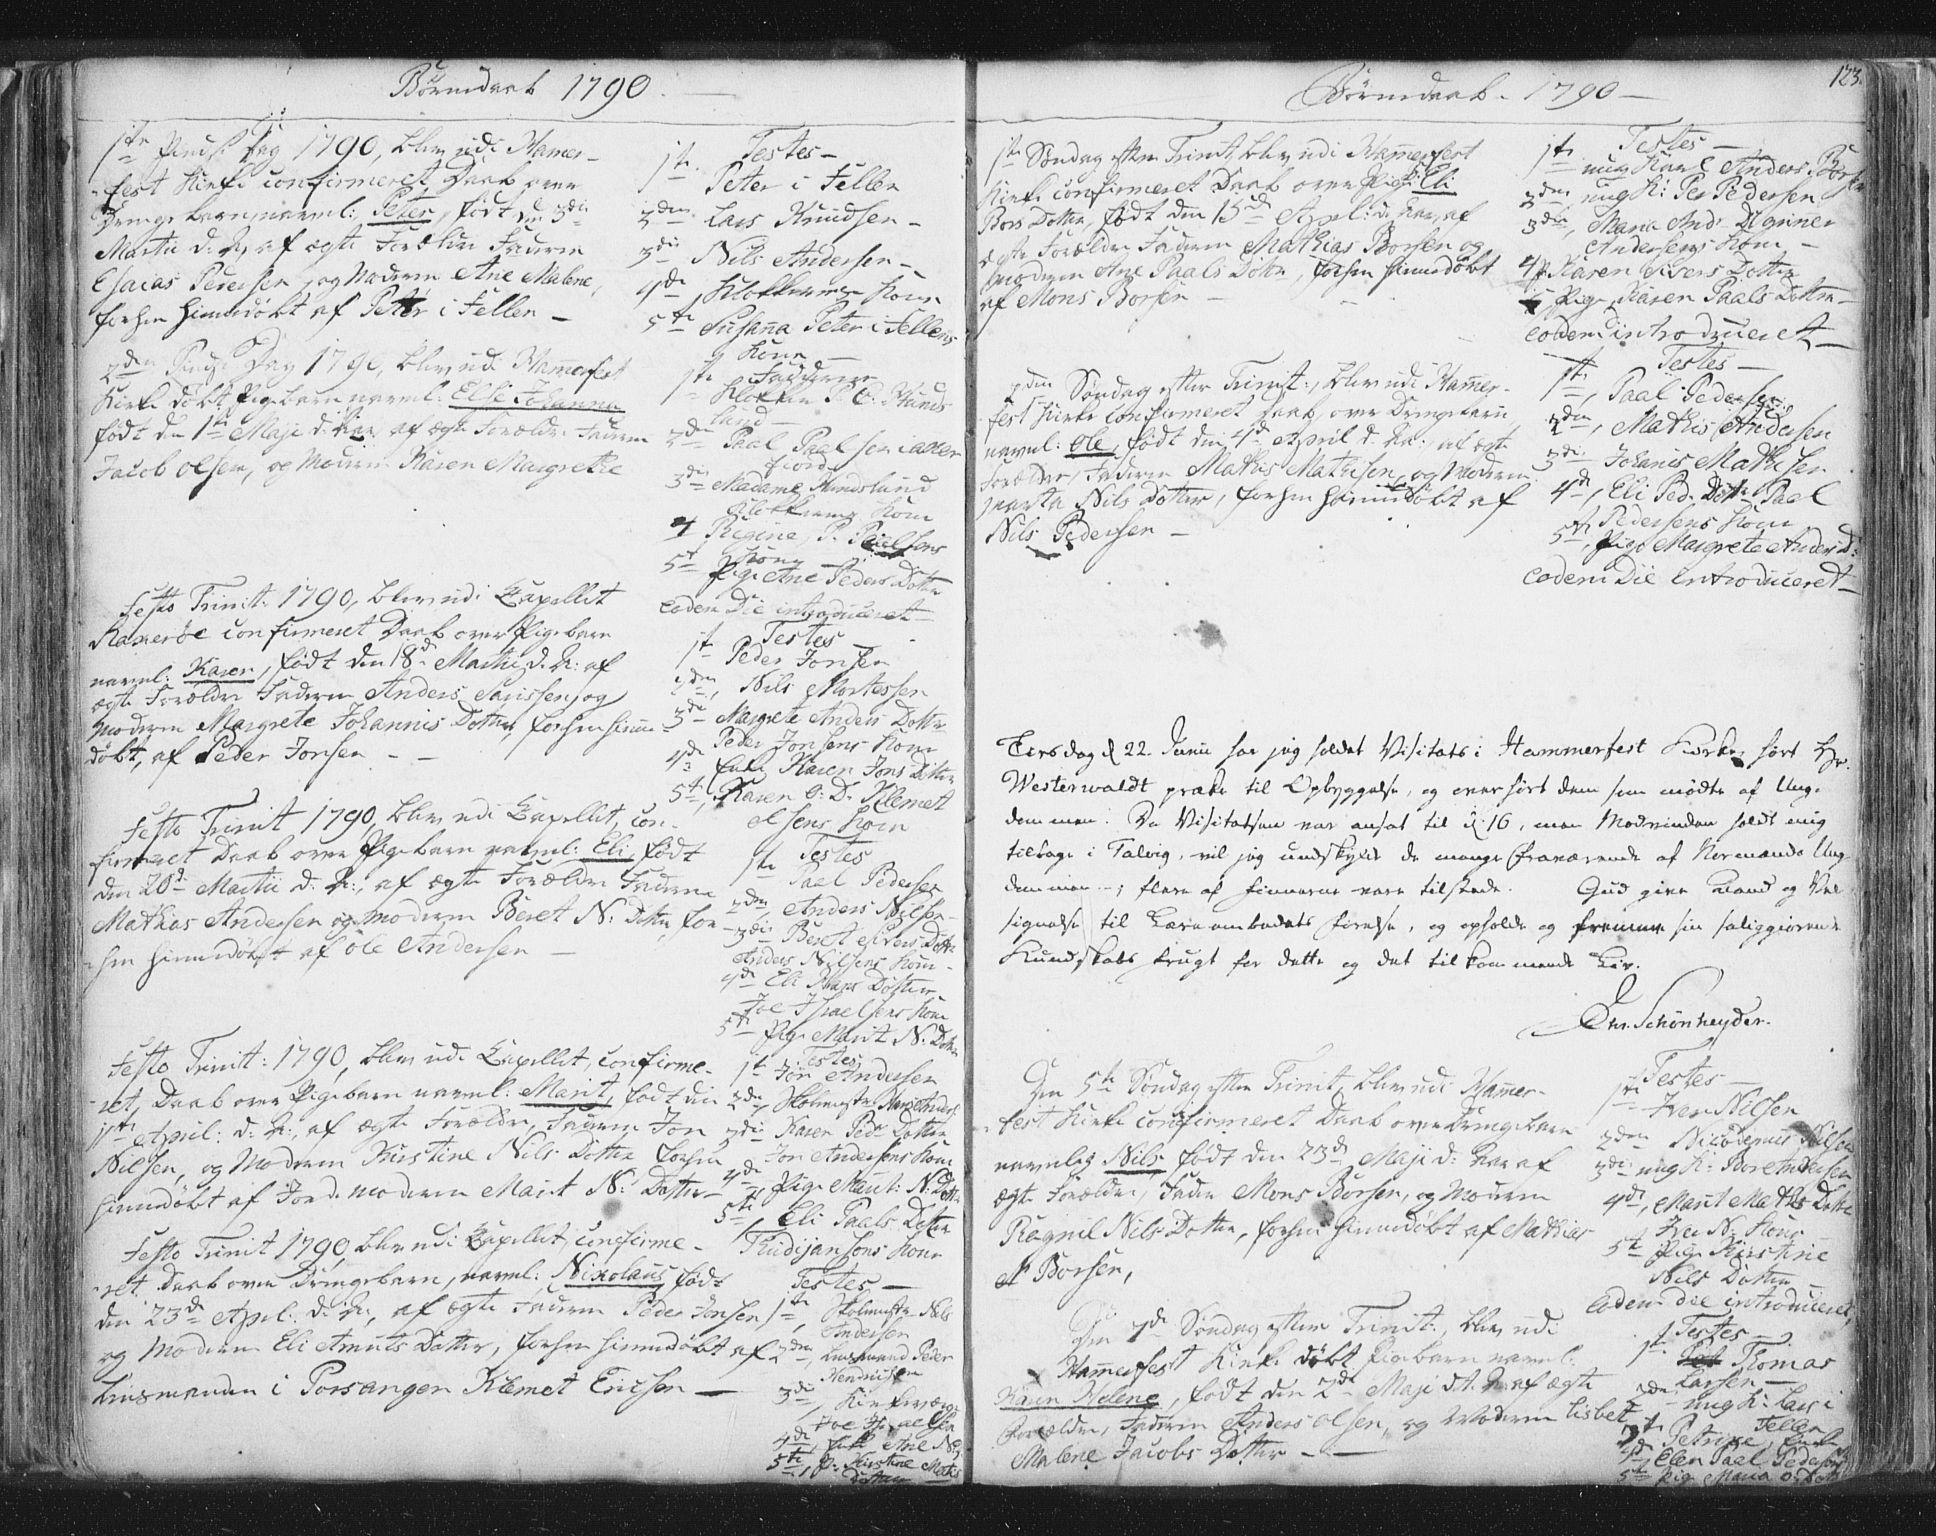 Børnedaab 1790.
1ste Pindse Dag 1790, blev udi Hamer-
fest Kirke confirmeret Daab over
Drenge barn navnl: Peter, født d 3die
Martii d: A, af ægte Forældre Faderen
Esaias Pedersen, og Moderen Ane Malene,
forhen hiemmedøbt af Peter i Fellen
Testes
1ste Peter i Fellen
2den Lars Knudsen
3die Nils Andersen
4de Klokkerens Kone
5te Susana Peter i Fellens
Kone
2den Pindse Dag 1790, blev udi Hamerfest
Kirke døbt Pige barn navnl: Else Johanna
født den 1ste Maji d: Aar, af ægte Forældre Faderen
Jacob Olsen, og Moderen Karen Margrethe
Faddere
1ste Klokker P. C. Hunds-
lund
2den Paal Paalsen i
fiord
3die Madame Hundslund
Klokkerens Kone
4 Regine, P. Paalsens
Kone
5t Pige Ane Peders Dotter
eodem Die introduceret
Festo Trinit: 1790, blev udi Capellet
confirmeret Daab over Pigebarn
navnl: Karen, født den 18de Martii d. A: af
ægte Forældre Faderen Anders og
Moderen Margrete Johannis Dotter, forhen hiemme-
døbt, af Peder Jonsen
Testes
1ste Peder Jonsen
2den, Nils Mortessen
3die Margrete Anders Dotter
Peder Jonsens Kone
4de Enke Karen Jons Dotter
5te, Karen O: D. Klemet
Olsens Kone
Festo Trinit 1790, blev udi Capellet, con-
firmeret Daab over Pigebarn navnl: Eli, født
den 20de Martii d. A:, af ægte Forældre Faderen
Mathias Andersen og Moderen Beret N: Dotter, for-
hen hiemmedøbt af Ole Andersen
Testes
1ste Paal Pedersen
2den Anders Nilsen
3die Beret Sivers Dotter
Anders Nilsens Kone
4de Eli Dotter
Joe Israelsens Kone
5te Pige Marit N: Dotter
Festo Trinit: 1790, blev udi Capellet, confirme-
ret, Daab over Pigebarn navnl: Marit, født den
11te April: d: A:, af ægte Forældre, Faderen Jon
Nilsen, og Moderen Kirstine Nils Dotter forhen
hiemmedøbt af Jordemoderen Marit N: Dotter
Testes
1te Jon Andersen
2den Skolemester Anders:
3die Karen Ped: Dotter
Jon Andersens Kone
4de, Pige Marit: N: Dotter
5te, Eli Paals Dotter
Kone
Festo Trinit 1790, blev udi Capellet, confirme-
ret Daab over Drengebarn, navnl: Nikolaus født
den 23de April: d: A:, af ægte Faderen Peder Jonsen
og Moderen Eli Amuts Datter, forhen hiemmedøbt af
Lensmanden i Porsanger Klemet Ericsen
Testes
1ste, Skolemester Nils
Andersen
2den, Lensmand Peder
Henricsen
3die, Kirkeværge
Joe Israelsen
4de, Enke Ane N:
5te, P: Kirstine Mathis
Dotter
Børnedaab. 1790
123.
1ste Søndag efter Trinit, blev udi Hamerfest
Kirke confirmeret Daab over Pige Eli
Bors Dotter, født den 15de April: d: Aar, af
ægte Forældre Faderen Mathias Borsen og
Moderen Ane Paals Dotter, forhen hiemmedøbt
af Mons Borsen
Testes
1te ung Karl Anders Borsen
2den, ung K: Per Pedersen
3die, Maria And:
Andersens Kone
4 Karen Sivers Dotter
5 Pige Karen Paals Dotter
eodem introduceret
2den Søndag efter Trinit:, blev udi Hamer-
fest Kirke confirmeret Daab, over Drengebarn
navnl: Ole, født den 4de April d. A:, af ægte
Forældre, Faderen Mathis Mathisen, og Moderen
Marta Nils Dotter, forhen hiemmedøbt af
Nils Pedersen
Testes
1ste, Paal Pedersen
2den, Mathis Andersen
3die Johanis Mathisen
4de, Eli Ped: Dotter Paal
Pedersens Kone
5te, Pige Margrete Anders D:
eodem Die introduceret
Tirsdag d 22. Junii har jeg holdet Visitats i Hammerfest Kirke, hørt Hr.
Westerwaldt præke til Opbyggelse, og overhørt dem som mødte af Ung-
dommen. Da Visitatsen var ansat til d. 16, men Modvinden holdt mig
tilbage i Talvig, vil jeg undskylde de mange fraværende af Normands Ung-
dommen; flere af Finnerne vare tilstede. Gud give Aand og Vel-
signelse til Læreembedets Førelse, og opholde og fremme sin saliggiørende
Kundskabs Frugt for dette og det tilkommende Liv.
Chr. Schønheyder.
Den 5te Søndag efter Trinit, blev udi Hamer-
fest Kirke confirmeret Daab over Drengebarn
navnlig Nils født den 23de Maji d: Aar af
ægte Forældre, Fader Mons Borsen, og Moderen
Ragnil Nils Dotter, forhen hiemmedøbt af Mathias
Borsen,
Testes
1ste Iver Nilsen
2den Nicodemus Nilsen
3die ung K: Bore Andersen
4de, Marit Mathis Dotter
Iver N: Kone
5te Pige Kirstine
Nils Dotter
eodem die introduceret,
Den 7de Søndag efter Trinit:, blev udi
Hamerfest Kirke døbt Pigebarn navnl:
Karen Helene, født den 2de Maji d. A: af ægte
Forældre, Faderen Anders Olsen, og Moderen Lisbet
Malene Jacobs Dotter
Testes
1st Thomas
Larsen
2den ung K: Lars i
Fellen
3die Petrine, Enke
4de Elen Paal Pedersens
5te Pige Maria O: Dotter